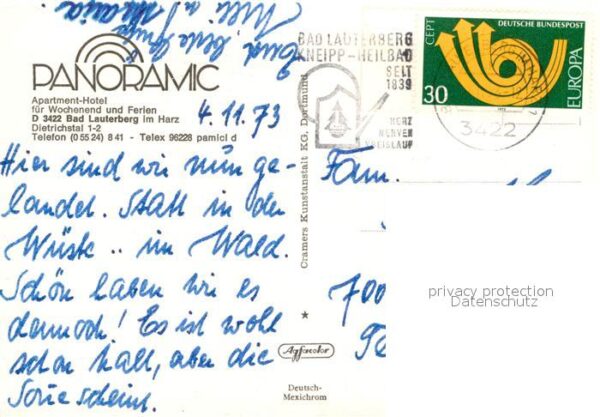 PANORAMIC
Apartment-Hotel
für Wochenend und Ferien
D 3422 Bad Lauterberg im Harz
Dietrichstal 1-2
Telefon (0 55 24) 8 41 - Telex 96228 pamicl d
4.11.73
Hier sind wir nun ge-
landet. Statt in der
Wüste .. im Wald.
Schön haben wir es
dennoch! Es ist wohl
schon kalt, aber die
Sonne scheint.
Cramers Kunstanstalt KG, Dortmund
BAD LAUTERBERG
KNEIPP-HEILBAD
SEIT
1839
HERZ
NERVEN
KREISLAUF
3422
CEPT
DEUTSCHE BUNDESPOST
EUROPA
30
1973
Fam.
700
Agfacolor
Deutsch-
Mexichrom
privacy protection
Datenschutz